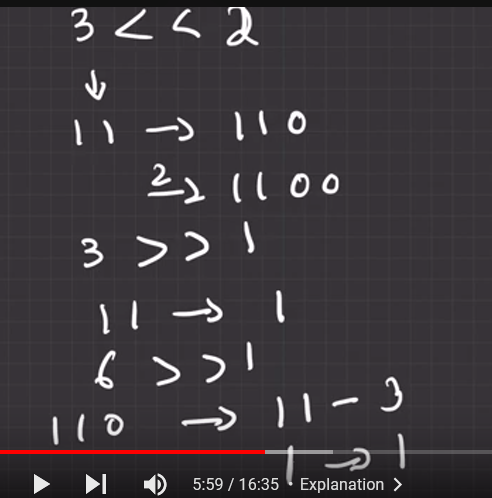 3 << 2
↓
11 → 110
2→ 1100
3 >> 1
11 → 1
6 >> 1
110 → 11 - 3
1 → 1
5:59 / 16:35 • Explanation >